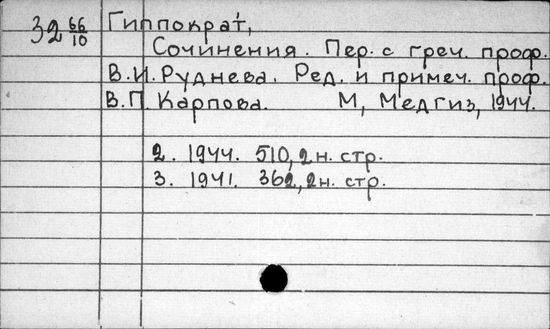 32 66/10 Гиппократ,
Сочинения. Пер. с греч. проф.
В.И. Руднева. Ред. и примеч. проф.
В.П. Карпова. М, Медгиз, 1944.
2. 1944. 510, 2 н. стр.
3. 1941. 362, 2 н. стр.